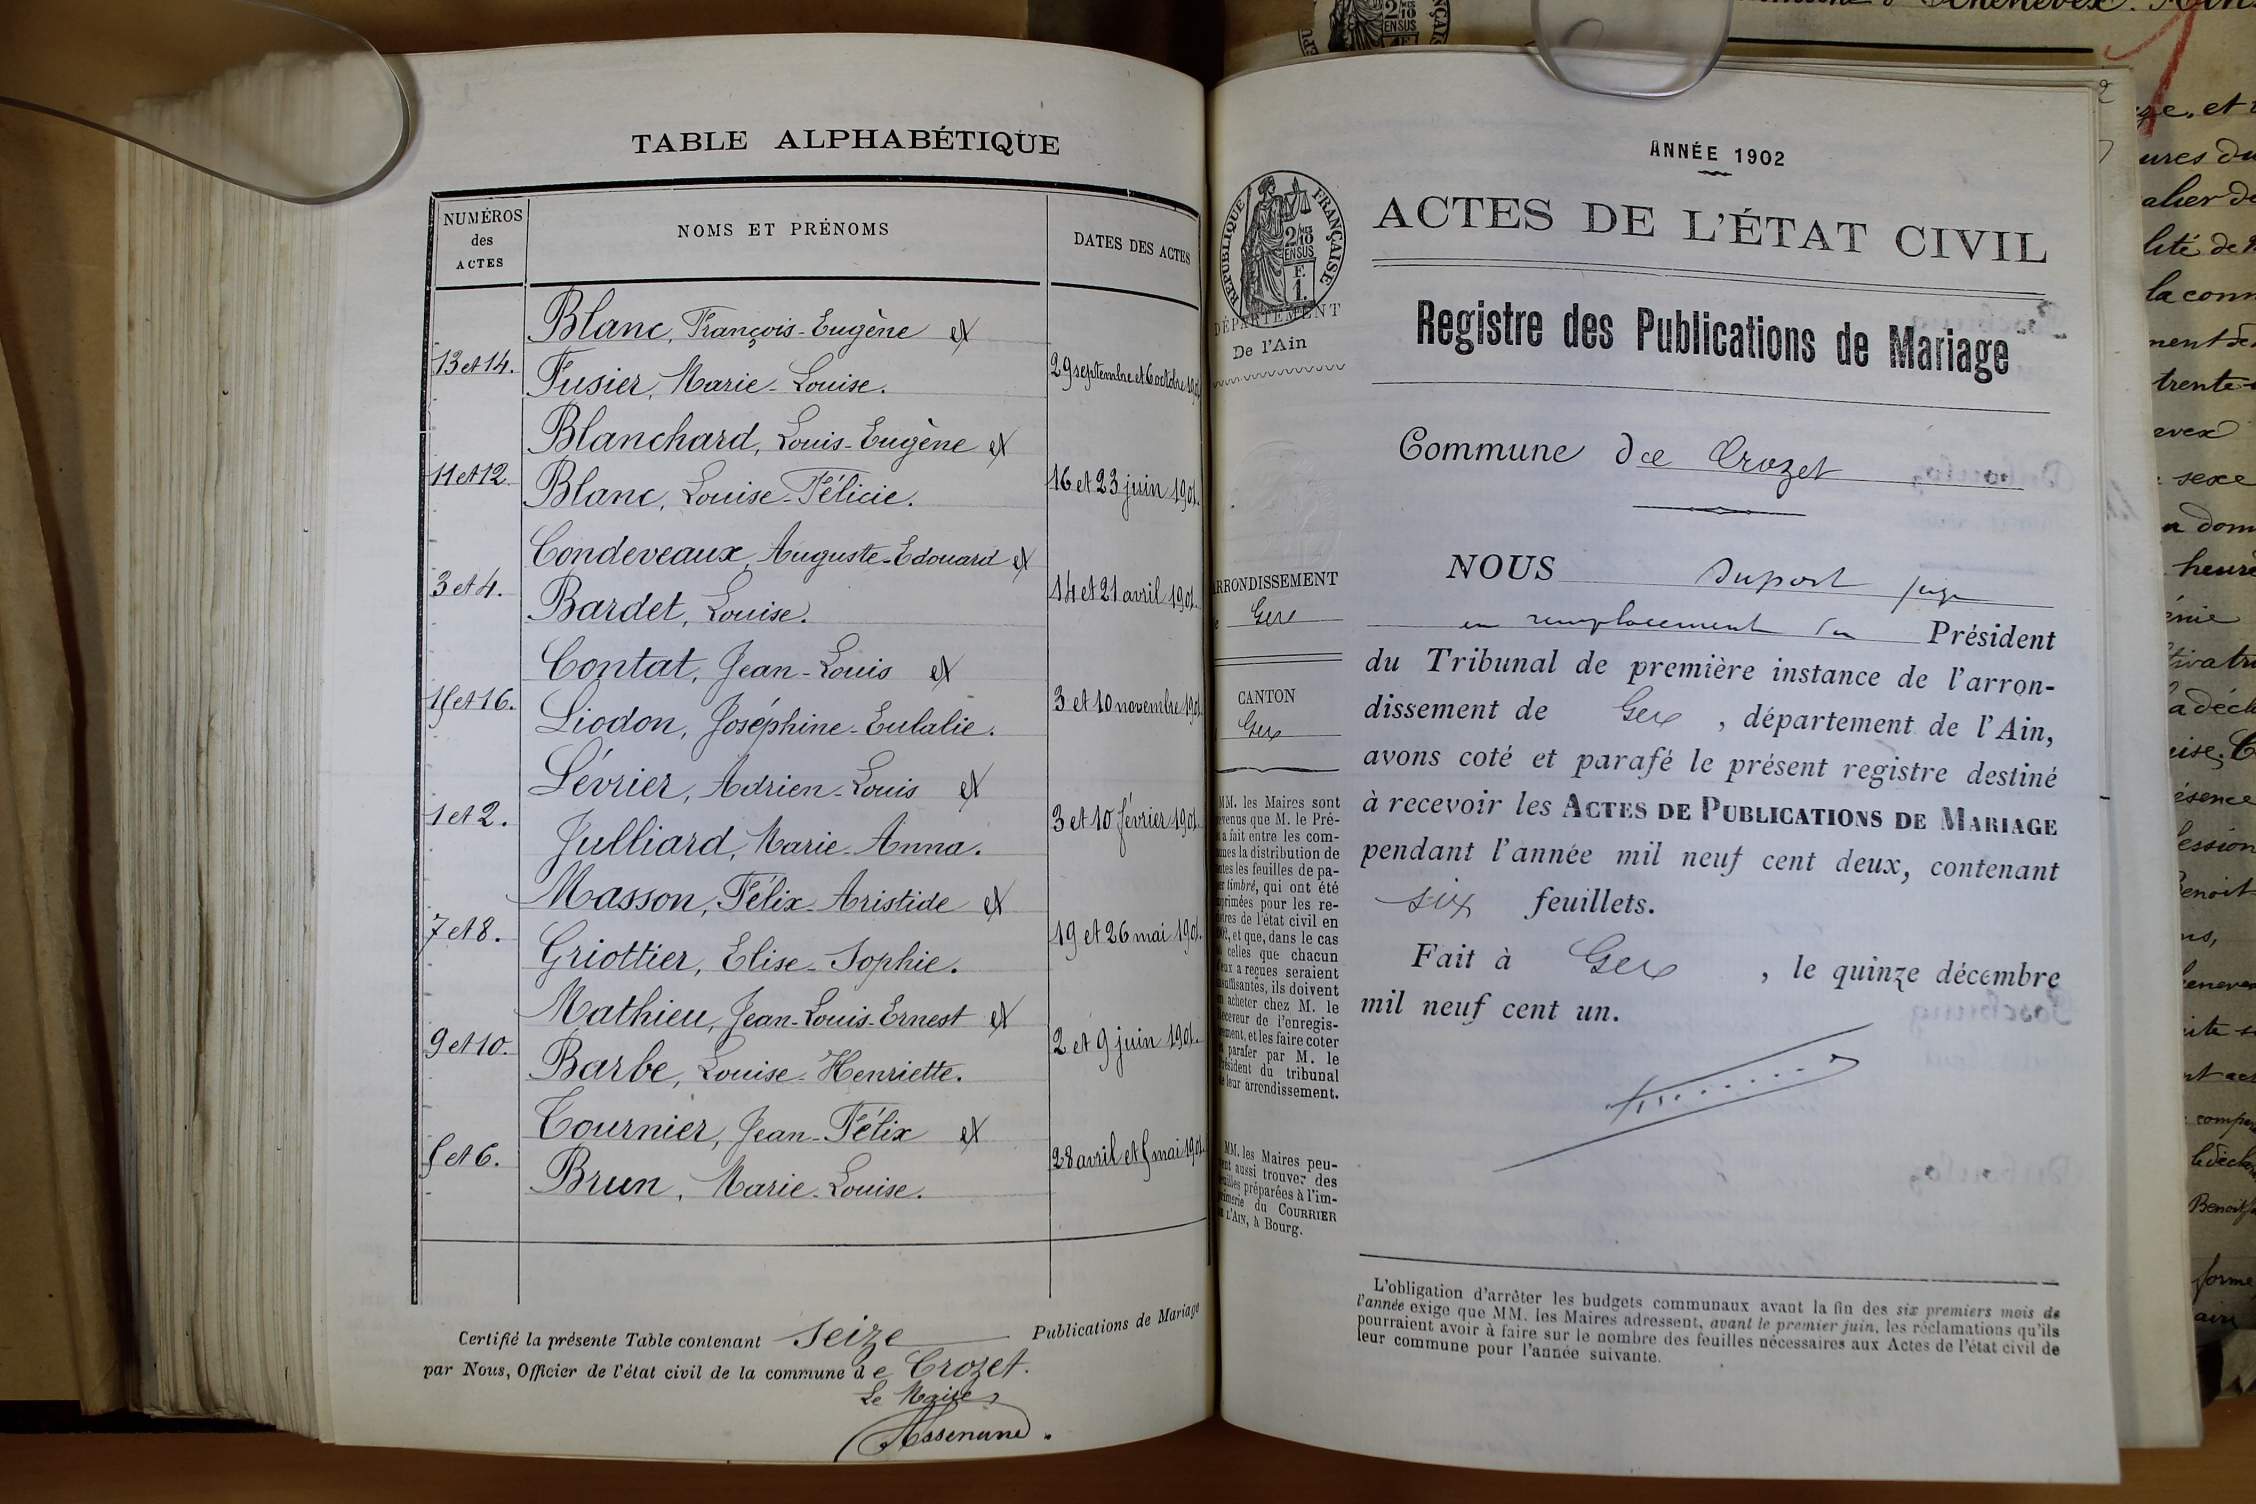 TABLE ALPHABÉTIQUE
NUMÉROS
des
ACTES
NOMS ET PRÉNOMS
DATES DES ACTES
Blanc, François-Eugène et
13 et 14.
29 septembre et 6 octobre 1901
Fusier, Marie-Louise.
Blanchard, Louis-Eugène et
11 et 12.
16 et 23 juin 1901.
Blanc, Louise-Félicie.
Condeveaux, Auguste-Edouard et
3 et 4.
14 et 21 avril 1901.
Bardet, Louise.
Contat, Jean-Louis et
15 et 16.
3 et 10 novembre 1901
Liodon, Joséphine-Eulalie.
Lévrier, Adrien-Louis et
1 et 2.
3 et 10 février 1901.
Julliard, Marie-Anna.
Masson, Félix-Aristide et
7 et 8.
19 et 26 mai 1901.
Griottier, Elise-Sophie.
Mathieu, Jean-Louis-Ernest et
9 et 10.
2 et 9 juin 1901.
Barbe, Louise-Henriette.
Tournier, Jean-Félix et
5 et 6.
28 avril et 5 mai 1901.
Brun, Marie-Louise.
Certifié la présente Table contenant seize Publications de Mariage
par Nous, Officier de l'état civil de la commune de Crozet.
Le Maire
ANNÉE 1902
ACTES DE L'ÉTAT CIVIL
RÉPUBLIQUE FRANÇAISE
2/10
EN SUS
F.
1.
DÉPARTEMENT
De l'Ain
Registre des Publications de Mariage
Commune de Crozet
ARRONDISSEMENT
Gex
CANTON
Gex
NOUS Dupont juge
en remplacement du Président
du Tribunal de première instance de l'arron-
dissement de Gex, département de l'Ain,
avons coté et parafé le présent registre destiné
à recevoir les ACTES DE PUBLICATIONS DE MARIAGE
pendant l'année mil neuf cent deux, contenant
six feuillets.
Fait à Gex, le quinze décembre
mil neuf cent un.
MM. les Maires sont
que M. le Pré-
a fait entre les com-
la distribution de
les feuilles de pa-
timbré, qui ont été
pour les re-
de l'état civil en
et que, dans le cas
celles que chacun
a reçues seraient
ils doivent
acheter chez M. le
de l'enregis-
et les faire coter
parafer par M. le
du tribunal
leur arrondissement.
MM. les Maires peu-
aussi trouver des
préparées à l'im-
du COURRIER
L'AIN, à Bourg.
L'obligation d'arrêter les budgets communaux avant la fin des six premiers mois de
l'année exige que MM. les Maires adressent, avant le premier juin, les réclamations qu'ils
pourraient avoir à faire sur le nombre des feuilles nécessaires aux Actes de l'état civil de
leur commune pour l'année suivante.